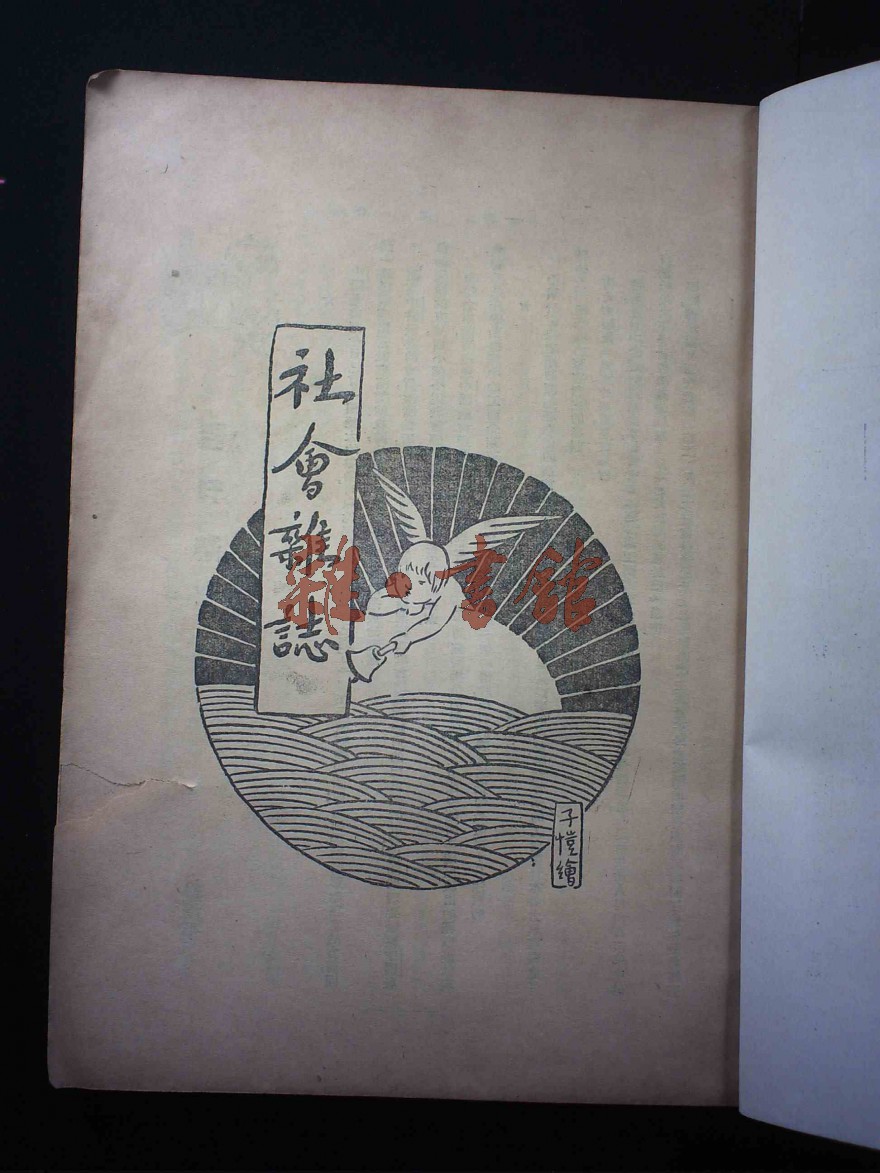 社會雜誌
雜·書館
子愷繪